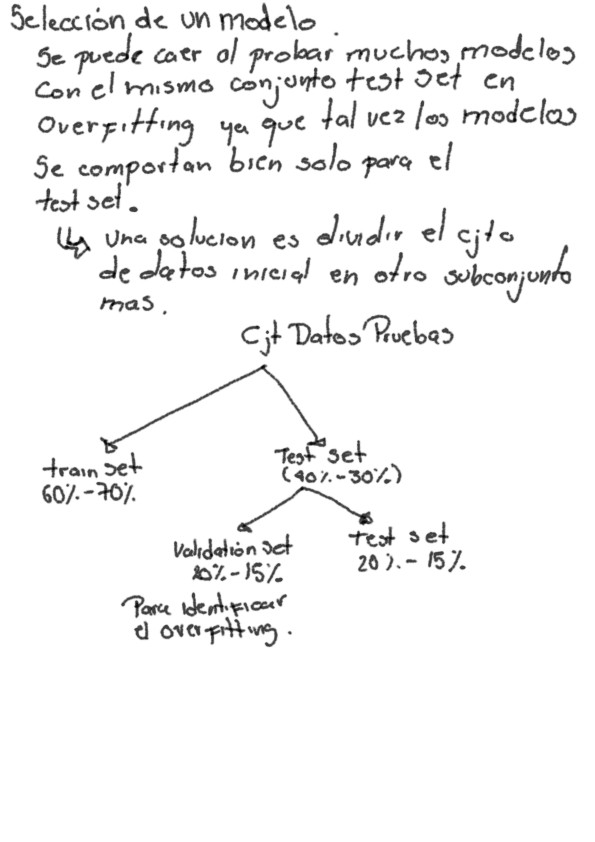 Selección de un modelo.
Se puede caer al probar muchos modelos
con el mismo conjunto test set en
Overfitting ya que tal vez los modelos
Se comportan bien solo para el
test set.
↳ Una solucion es dividir el cjto
de datos inicial en otro subconjunto
mas.
Cjt Datos Pruebas
train set
60%-70%
Test set
(40%-30%)
Validation set
20%-15%
test set
20%-15%
Para identificar
el overfitting.